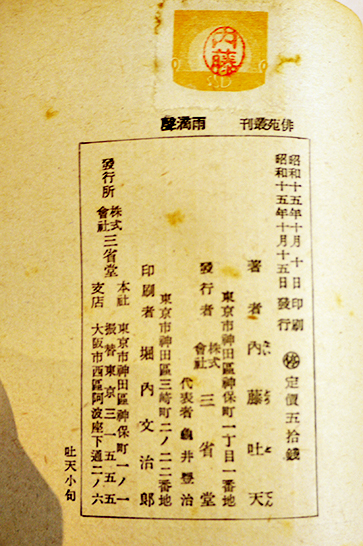 内藤
俳苑叢刊　雨滴聲
昭和十五年十月十日印刷
昭和十五年十月十五日發行
停 定價五拾錢
著者 内藤吐天
東京市神田區神保町一丁目一番地
發行者 株式會社 三省堂
代表者 龜井豐治
東京市神田區三崎町二ノ二二番地
印刷者 堀内文治郎
發行所 株式會社 三省堂
本社 東京市神田區神保町一ノ一
振替東京三一五五五
支店 大阪市西區阿波座下通二ノ六
吐天小句